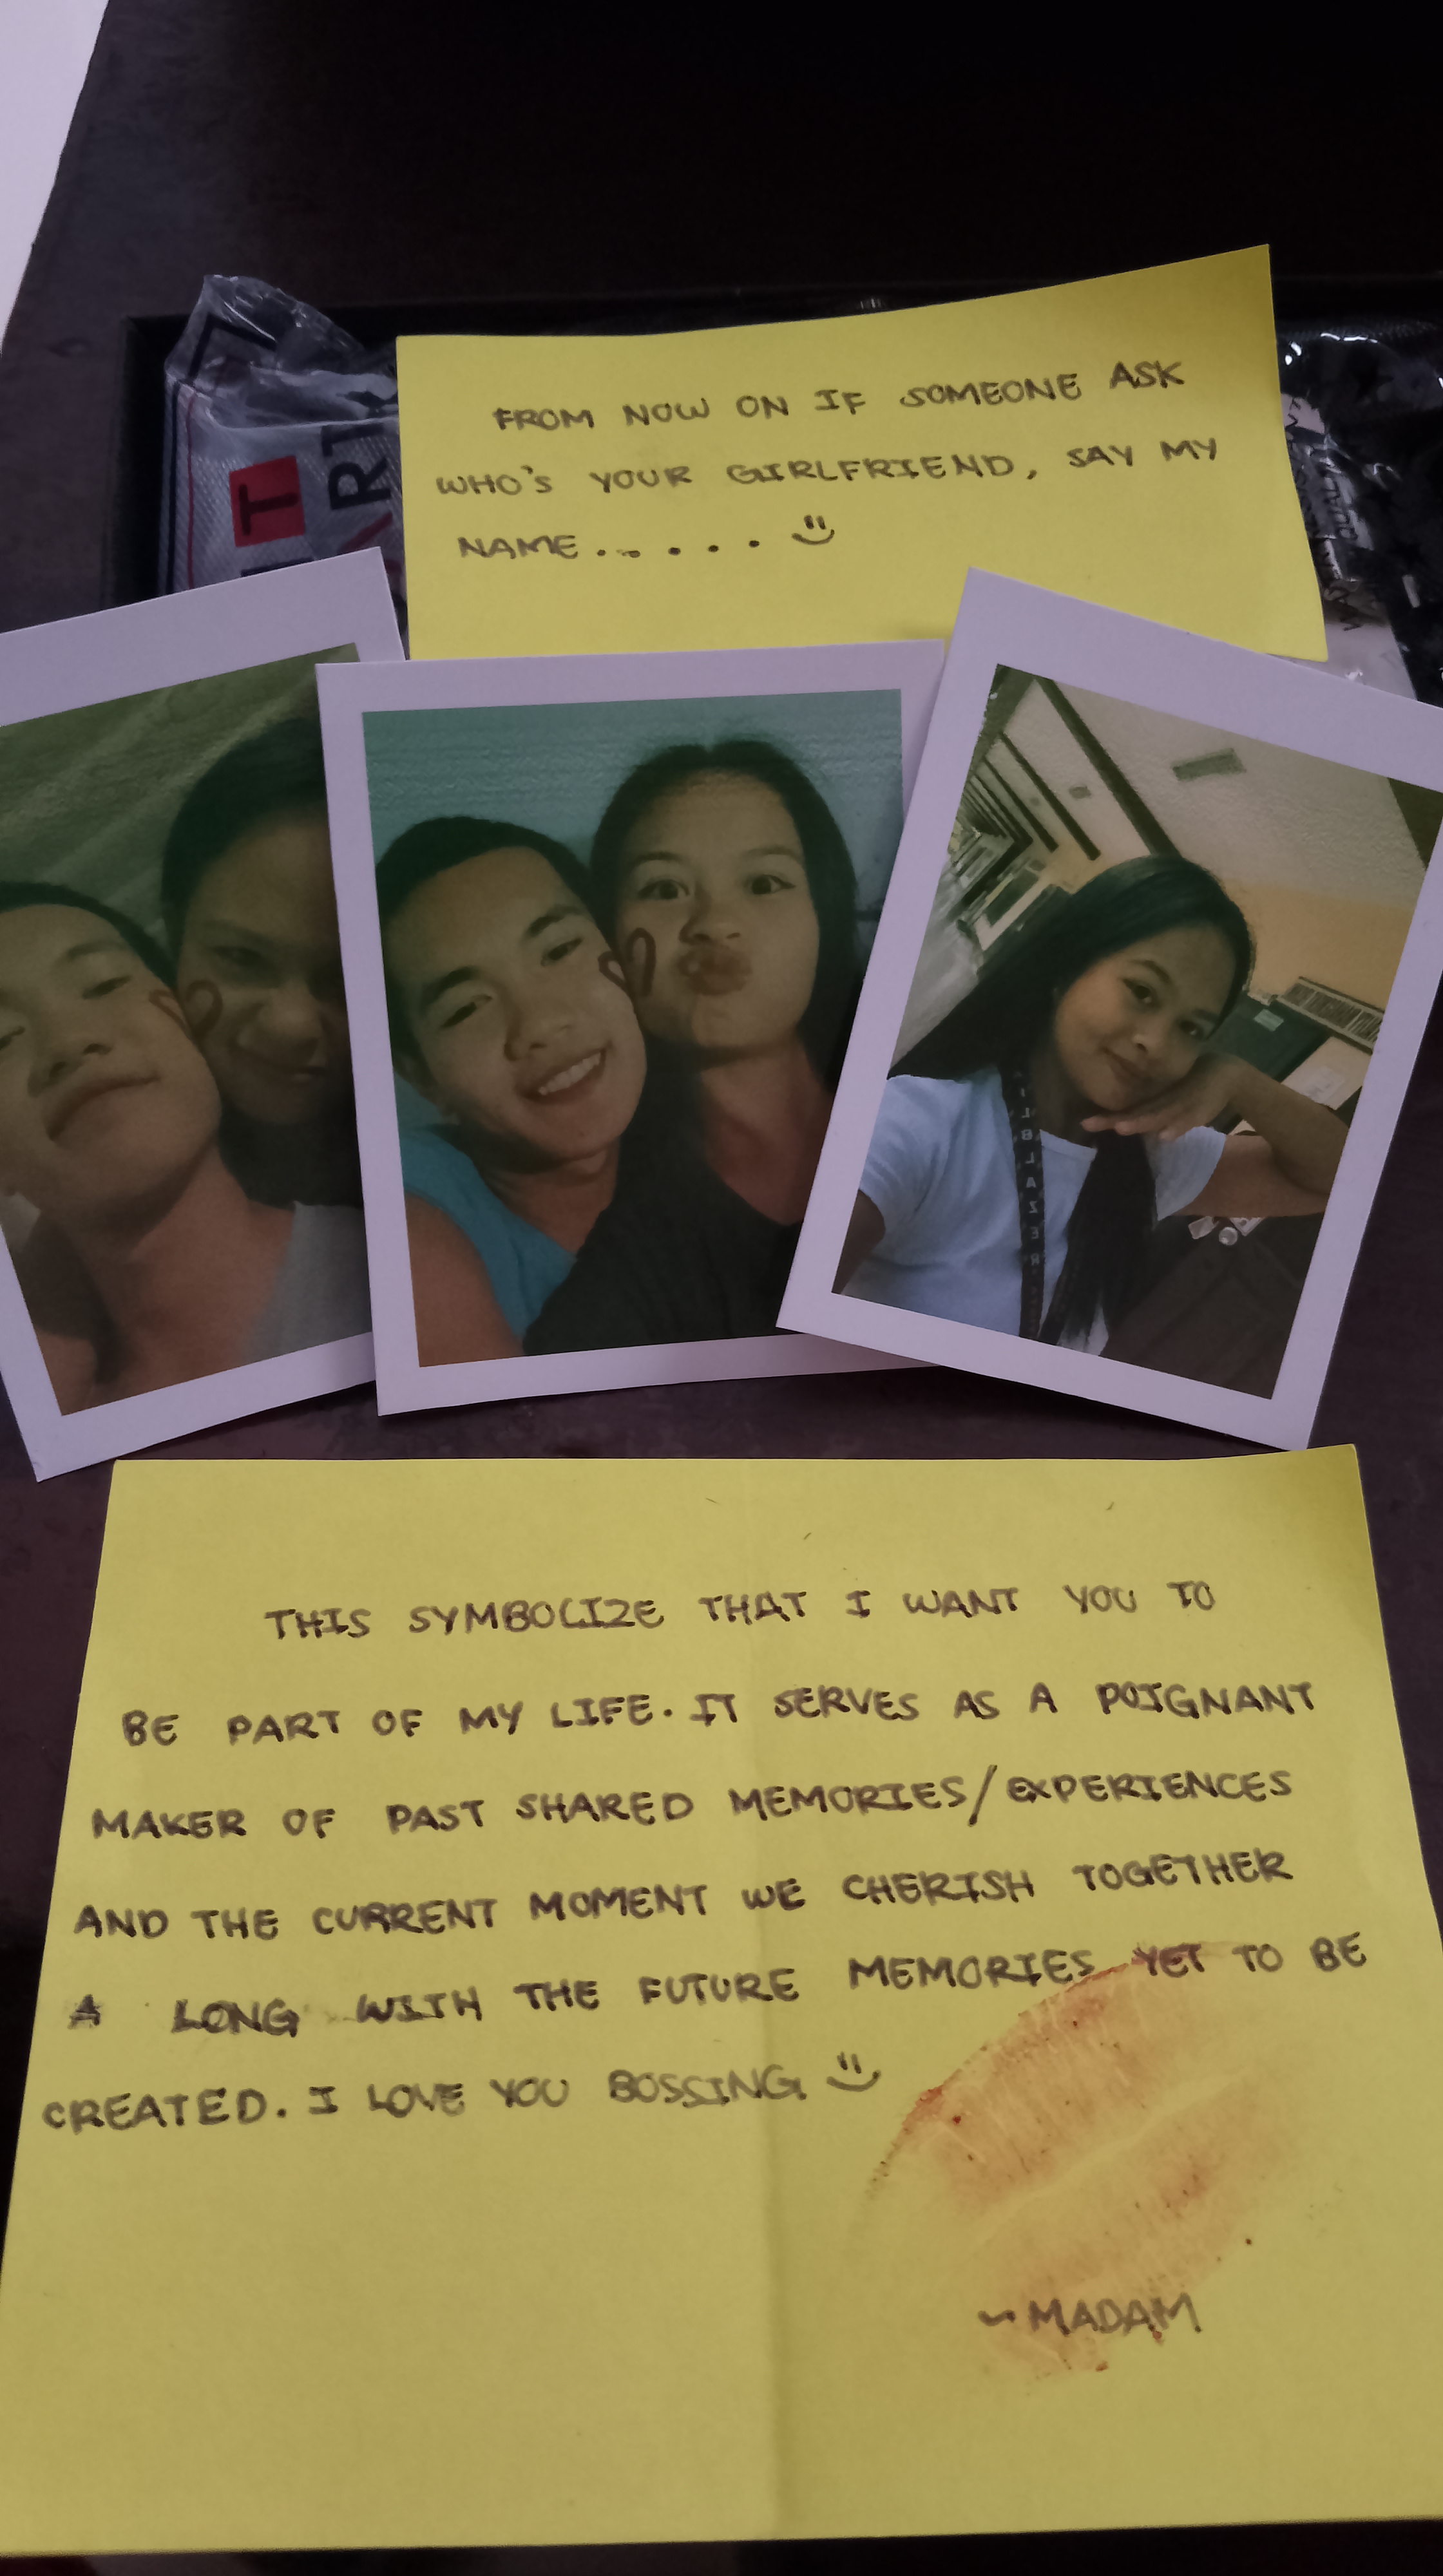 FROM NOW ON IF SOMEONE ASK
WHO'S YOUR GIRLFRIEND, SAY MY
NAME......
THIS SYMBOLIZE THAT I WANT YOU TO
BE PART OF MY LIFE. IT SERVES AS A POIGNANT
MAKER OF PAST SHARED MEMORIES/EXPERIENCES
AND THE CURRENT MOMENT WE CHERISH TOGETHER
A LONG WITH THE FUTURE MEMORIES YET TO BE
CREATED. I LOVE YOU BOSSING.
~MADAM